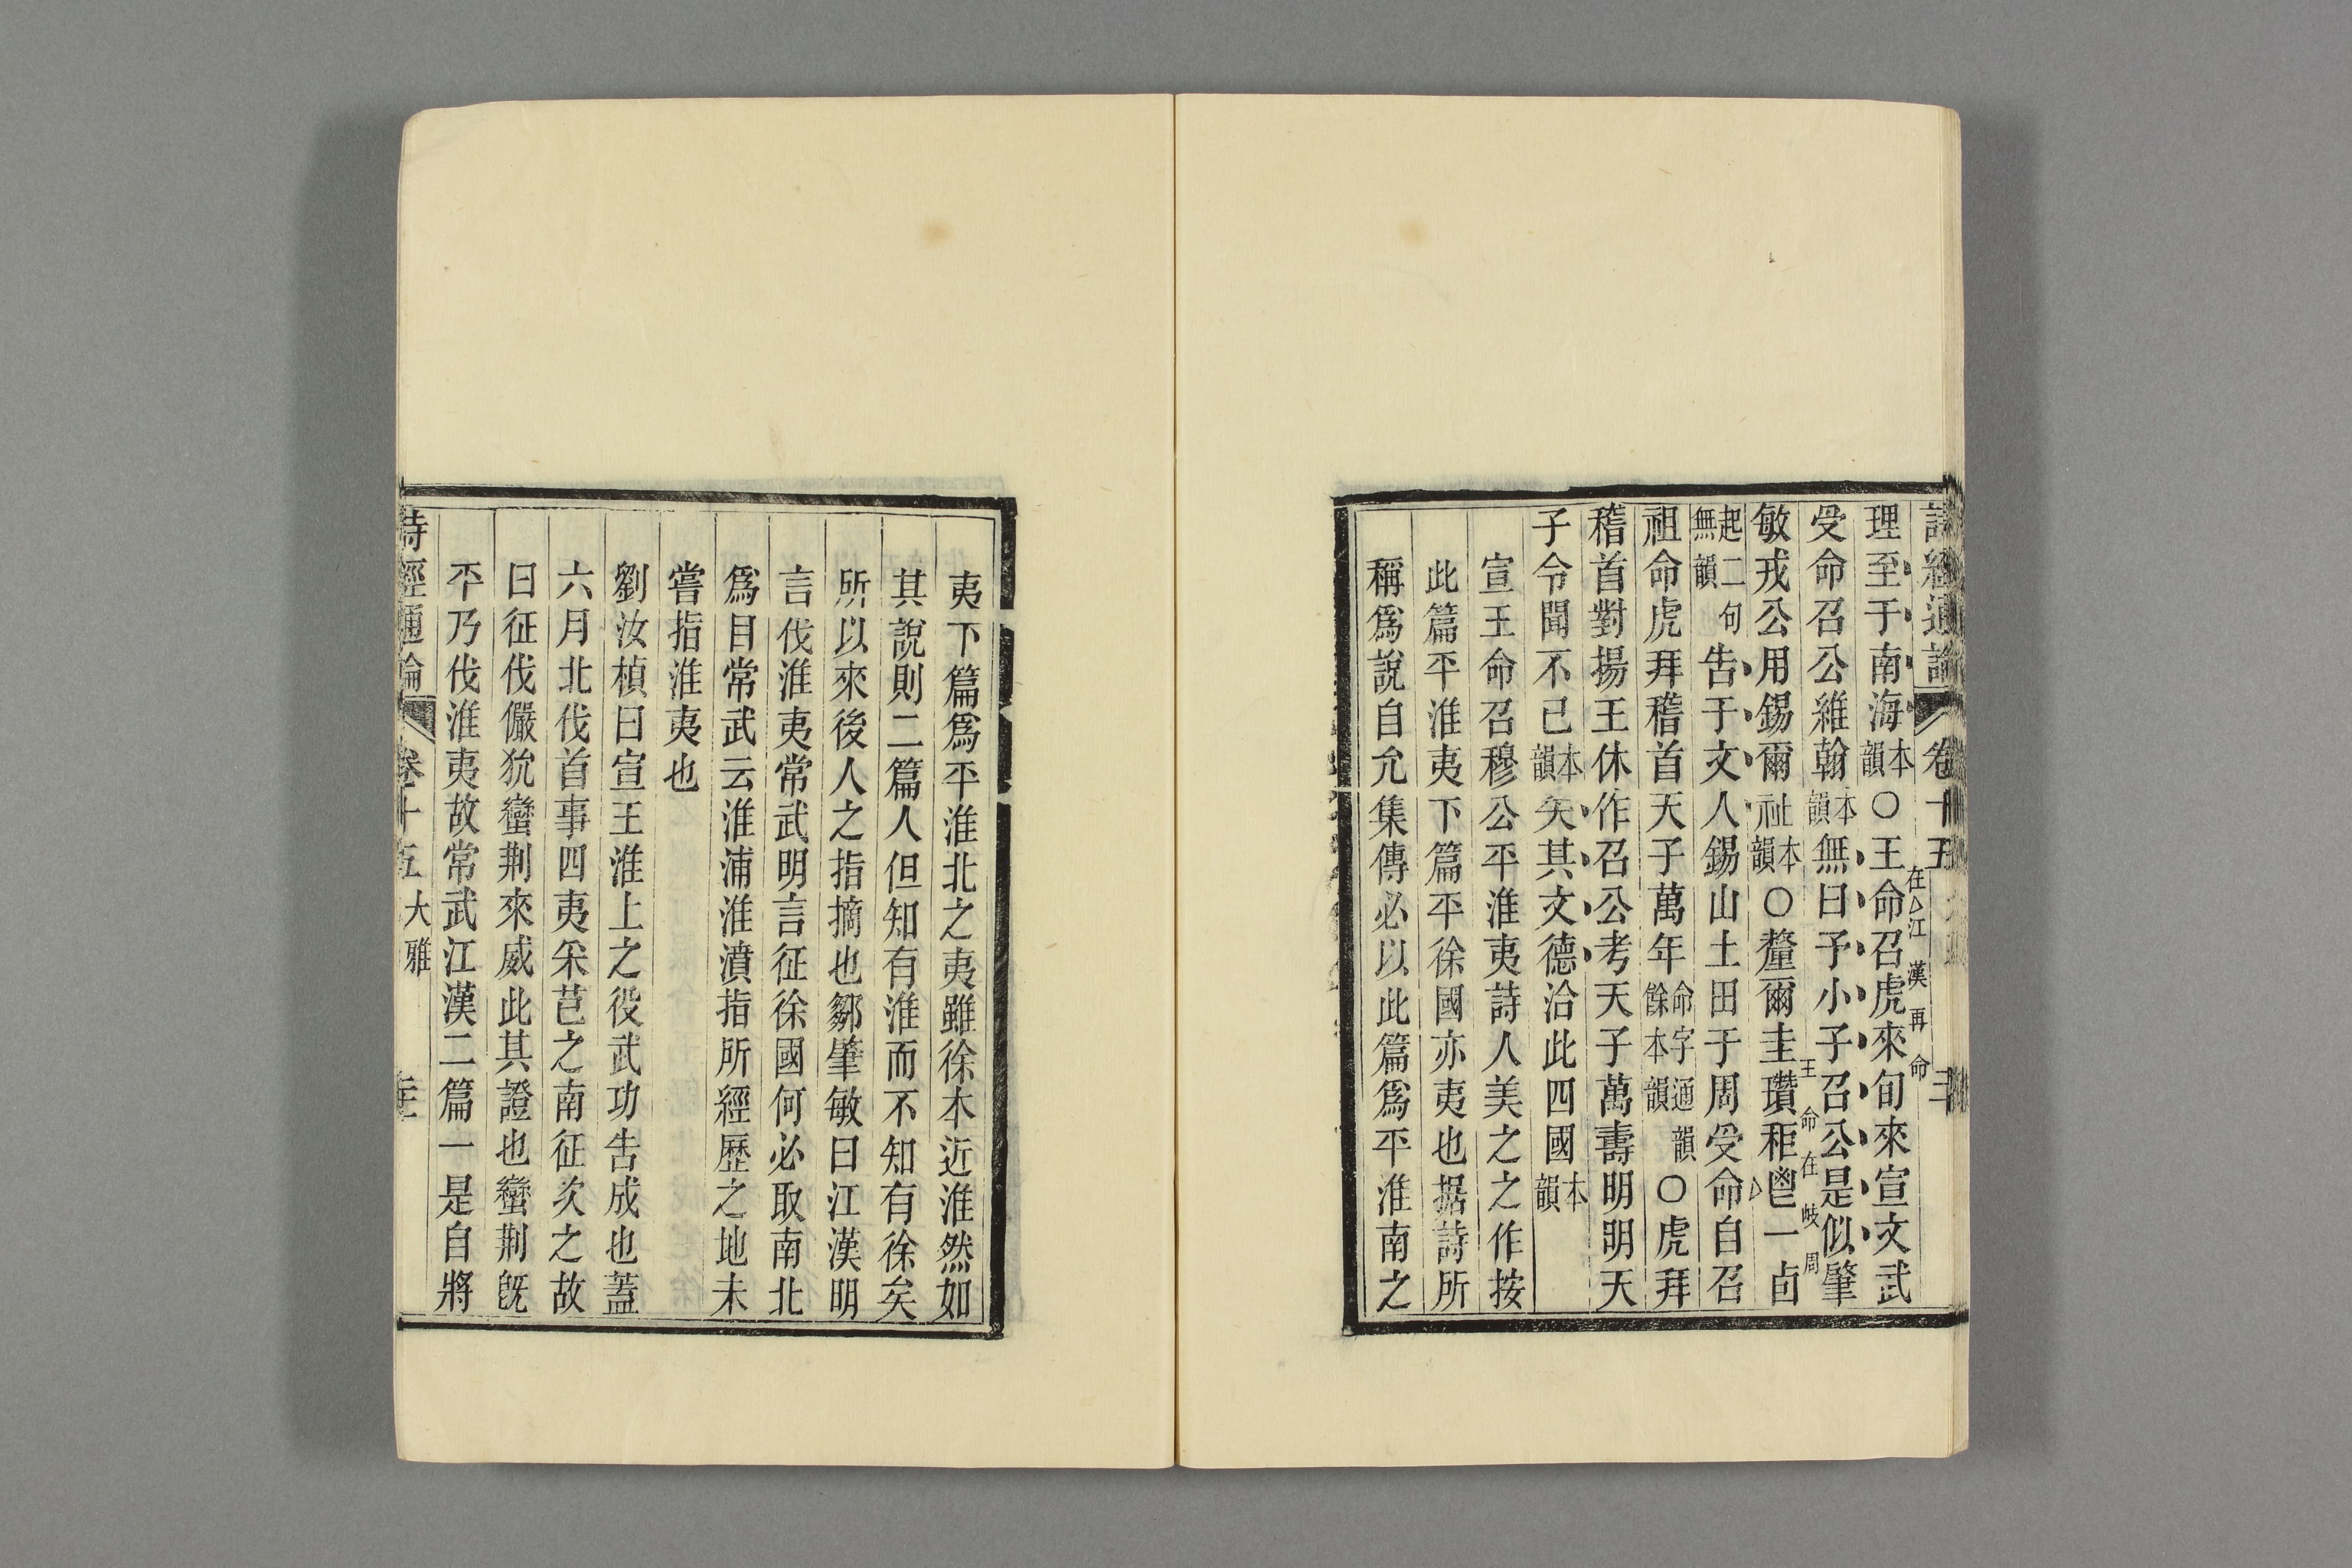 詩經通論 卷十五 三
理至于南海本韻○王命召虎來旬來宣文武
在江漢再命
受命召公維翰本韻無曰予小子召公是似肇
敏戎公用錫爾祉本韻○釐爾圭瓚秬鬯一卣
王命在岐周
起二句無韻告于文人錫山土田于周受命自召
祖命虎拜稽首天子萬年命字通韻餘本韻○虎拜
稽首對揚王休作召公考天子萬壽明明天
子令聞不已本韻矢其文德洽此四國本韻
宣王命召穆公平淮夷詩人美之之作按
此篇平淮夷下篇平徐國亦夷也据詩所
稱爲說自允集傳必以此篇爲平淮南之
夷下篇爲平淮北之夷雖徐本近淮然如
其說則二篇人但知有淮而不知有徐矣
所以來後人之指摘也鄒肇敏曰江漢明
言伐淮夷常武明言征徐國何必取南北
爲目常武云淮浦淮濆指所經歷之地未
嘗指淮夷也
劉汝楨曰宣王淮上之役武功告成也蓋
六月北伐首事四夷采芑之南征次之故
曰征伐儼狁蠻荆來威此其證也蠻荆旣
平乃伐淮夷故常武江漢二篇一是自將
詩經通論 卷十五 大雅